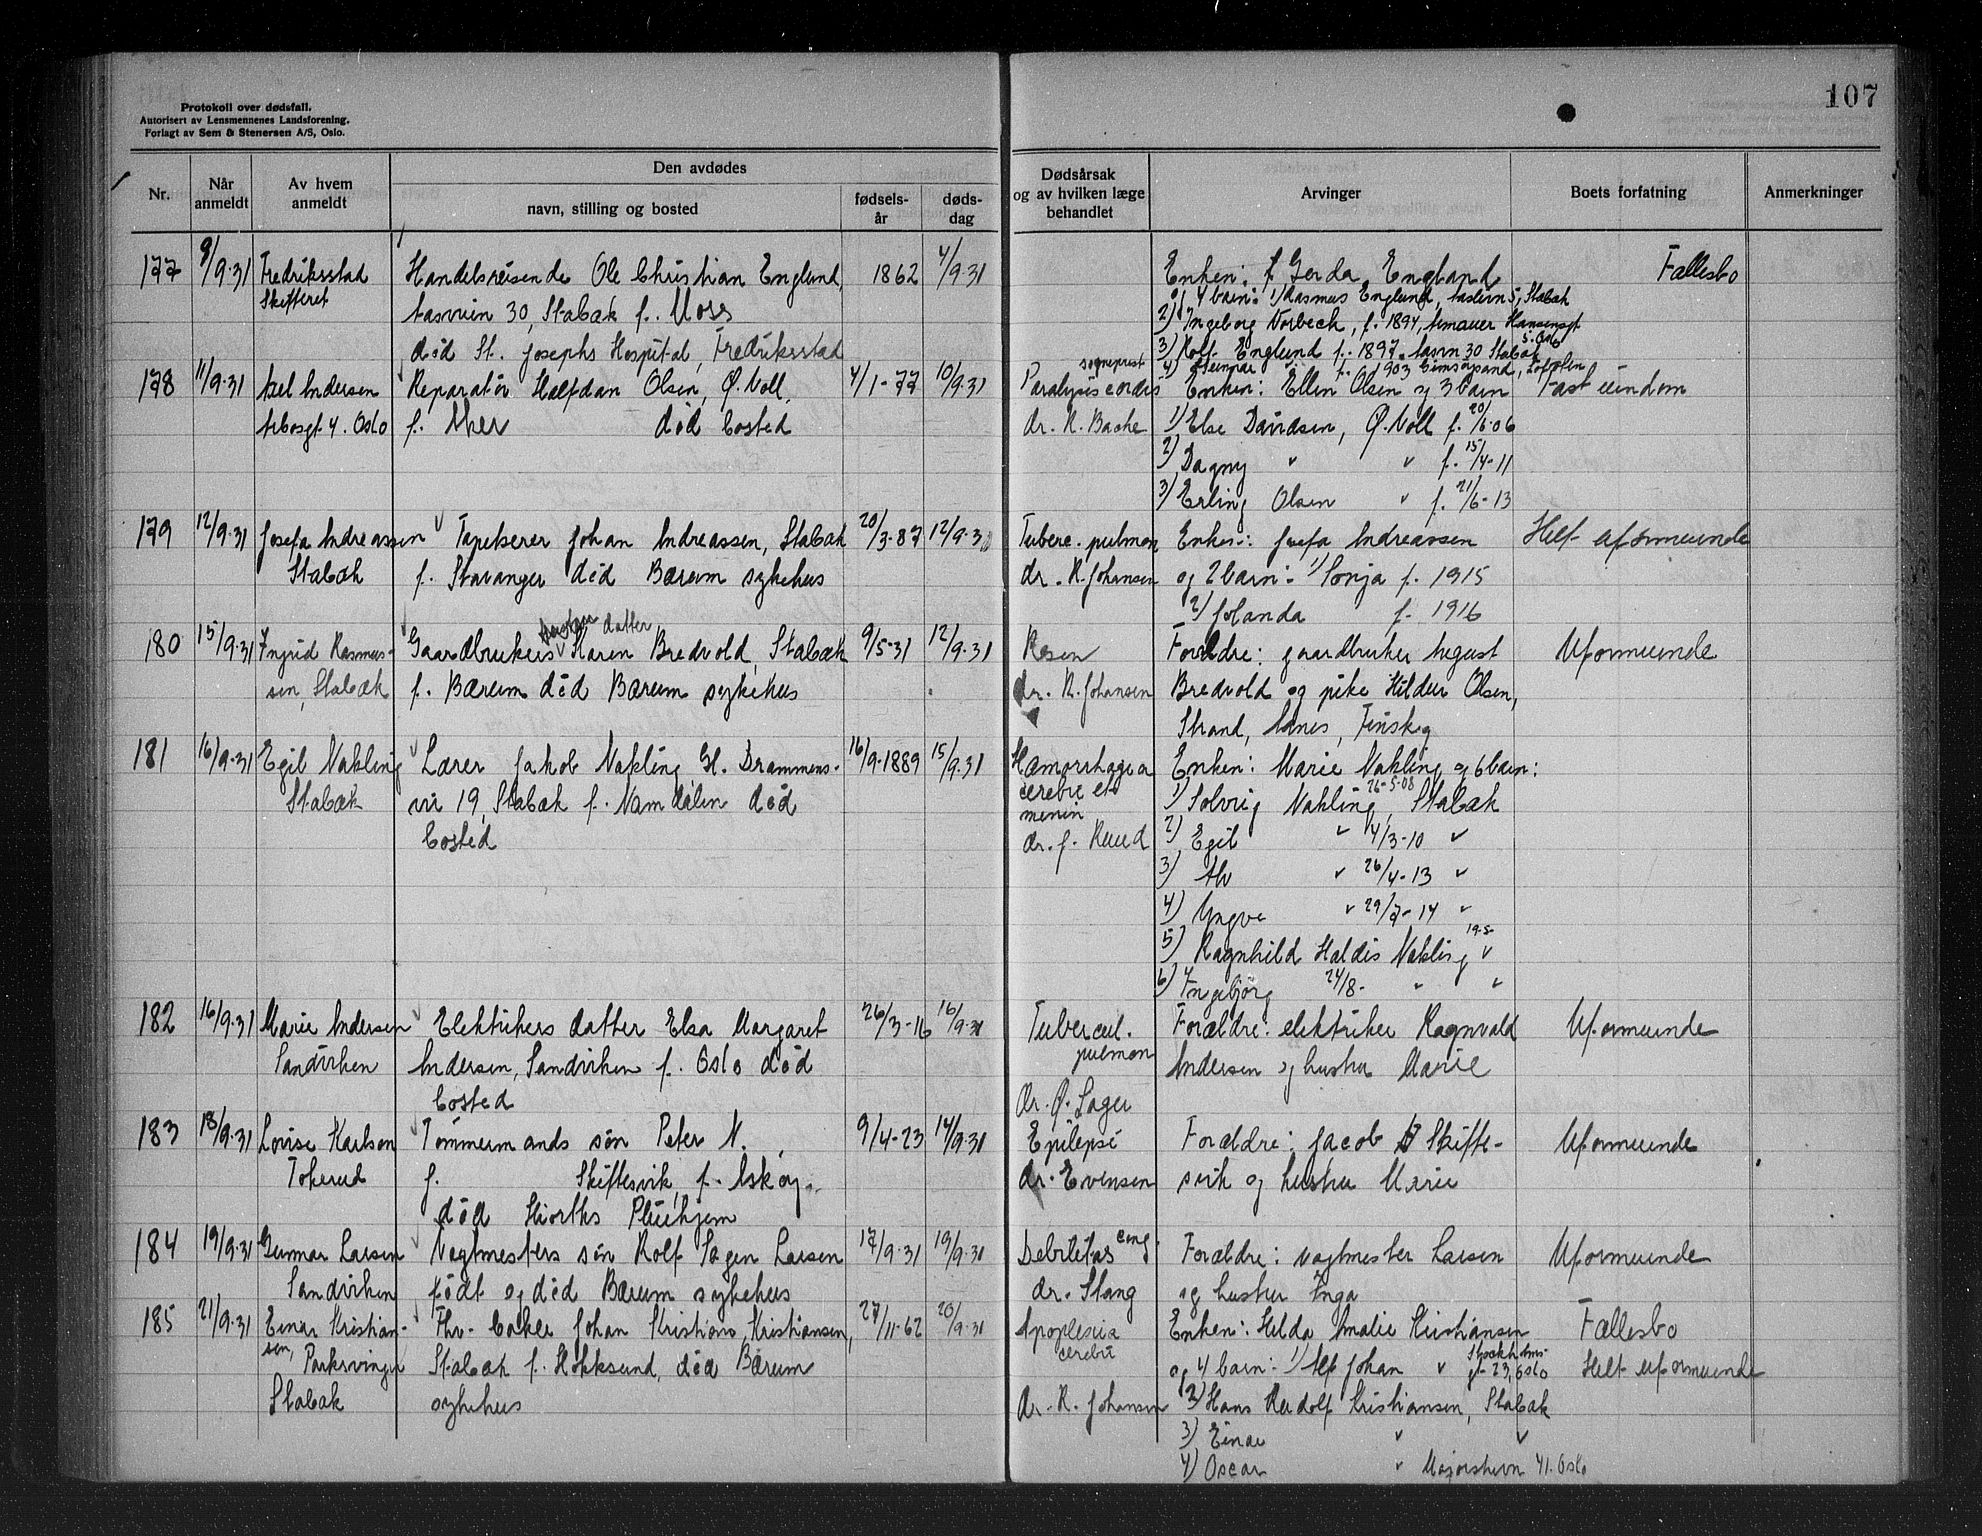 107
Protokoll over dødsfall.
Autorisert av Lensmennenes Landsforening.
Forlagt av Sem & Stenersen A/S, Oslo.
Nr.
Når anmeldt
Av hvem anmeldt
Den avdødes
navn, stilling og bosted
fødsels-år
døds-dag
Dødsårsak og av hvilken læge behandlet
Arvinger
Boets forfatning
Anmerkninger
177 9/9.31 Fredriksstad Handelsreisende Ole Christian Englund, 1862 4/9.31 Enken: Gerda Englund Fællesbo
Skifteret 30, Stabæk f. Moss og 4 barn: 1) Rasmus Englund, 5, Stabæk
2) Ingeborg Norbech, f. 1894, Hansensgt
død St. Josephs Hospital, Fredriksstad 3) Rolf Englund f. 1897. 30 Stabæk 5. Oslo
sogneprest 4) Steinar " f. 1903 Gimsøysand, Lofoten
178 11/9.31 Axel Andersen Reparatør Halfdan Olsen, Ø. Voll. 4/1-77 10/9.31 Paralysis cordis Enken: Ellen Olsen og 3 barn Fast eiendom
4. Oslo f. død bosted dr. K. Bache 1) Else Davidsen, Ø. Voll f. 20/6.06
2) Dagny " " f. 15/4-11
3) Erling Olsen " f. 21/6-13
179 12/9.31 Josefa Andreassen Tapetserer Johan Andreassen, Stabæk 20/3-87 12/9.31 Tuberc. pulmon Enke: Josefa Andreassen Helt uformuende
Stabæk f. Stavanger død Bærum sykehus dr. K. Johansen og 2 barn: 1) Sonja f. 1915
2) Jolanda f. 1916
datter
180 15/9.31 Ingrid Rasmus- Gaardbrukers Karen Bredvold, Stabæk 9/5-31 12/9.31 Forældre: gaardbruker August Uformuende
sen, Stabæk f. Bærum død Bærum sykehus dr. K. Johansen Bredvold og pike Hildur Olsen,
Strand, Finskog
181 16/9.31 Egil Nakling Lærer Jakob Nakling Gl. Drammens- 16/9-1889 15/9.31 Hæmorrhagia Enken: Marie Nakling og 6 barn:
Stabæk vei 19, Stabæk f. Namdalen død cerebri et 1) Solveig Nakling 26-5-08, Stabæk
menin
bosted dr. J. Ruud 2) Egil " 4/3-10 "
3) Alv " 26/4-13 "
4) Yngve " 29/7-14 "
5) Ragnhild Haldis Nakling 19-5- "
6) Ingebjørg 24/8- " "
182 16/9.31 Marie Andersen Elektrikers datter Elsa Margaret 26/3-16 16/9.31 Tubercul. Forældre: elektriker Ragnvald Uformuende
Sandviken Andersen, Sandviken f. Oslo død pulmon Andersen og hustru Marie
bosted dr. Ø. Sager
183 18/9.31 Lovise Karlson Tømmermands søn Peter N. 9/4-23 14/9.31 Epilepsi Forældre: Jacob Skifte- Uformuende
Tokerud f. Skiftesvik f. Askøy. dr. Evensen svik og hustru Marie
død Hiorths Pleiehjem
184 19/9.31 Gunnar Larsen Vagtmesters søn Rolf Sagen Larsen 17/9.31 19/9.31 Debilitas cong. Forældre: vagtmester Larsen Uformuende
Sandviken født og død Bærum sykehus dr. Stang og hustru Inga
185 21/9.31 Einar Kristian- Fhv. baker Johan Kristian Kristiansen, 27/11-62 20/9.31 Apoplexia Enken: Hilda Amalie Kristiansen Fællesbo
sen, Parksvingen Stabæk f. Hokksund, død Bærum cerebri og 4 barn: 1) Alf Johan " Stockholms-gt 23, Oslo Helt uformuende
Stabæk sykehus dr. K. Johansen 2) Hans Rudolf Kristiansen, Stabæk
3) Einar " "
4) Oscar " Majorstuvn 41. Oslo